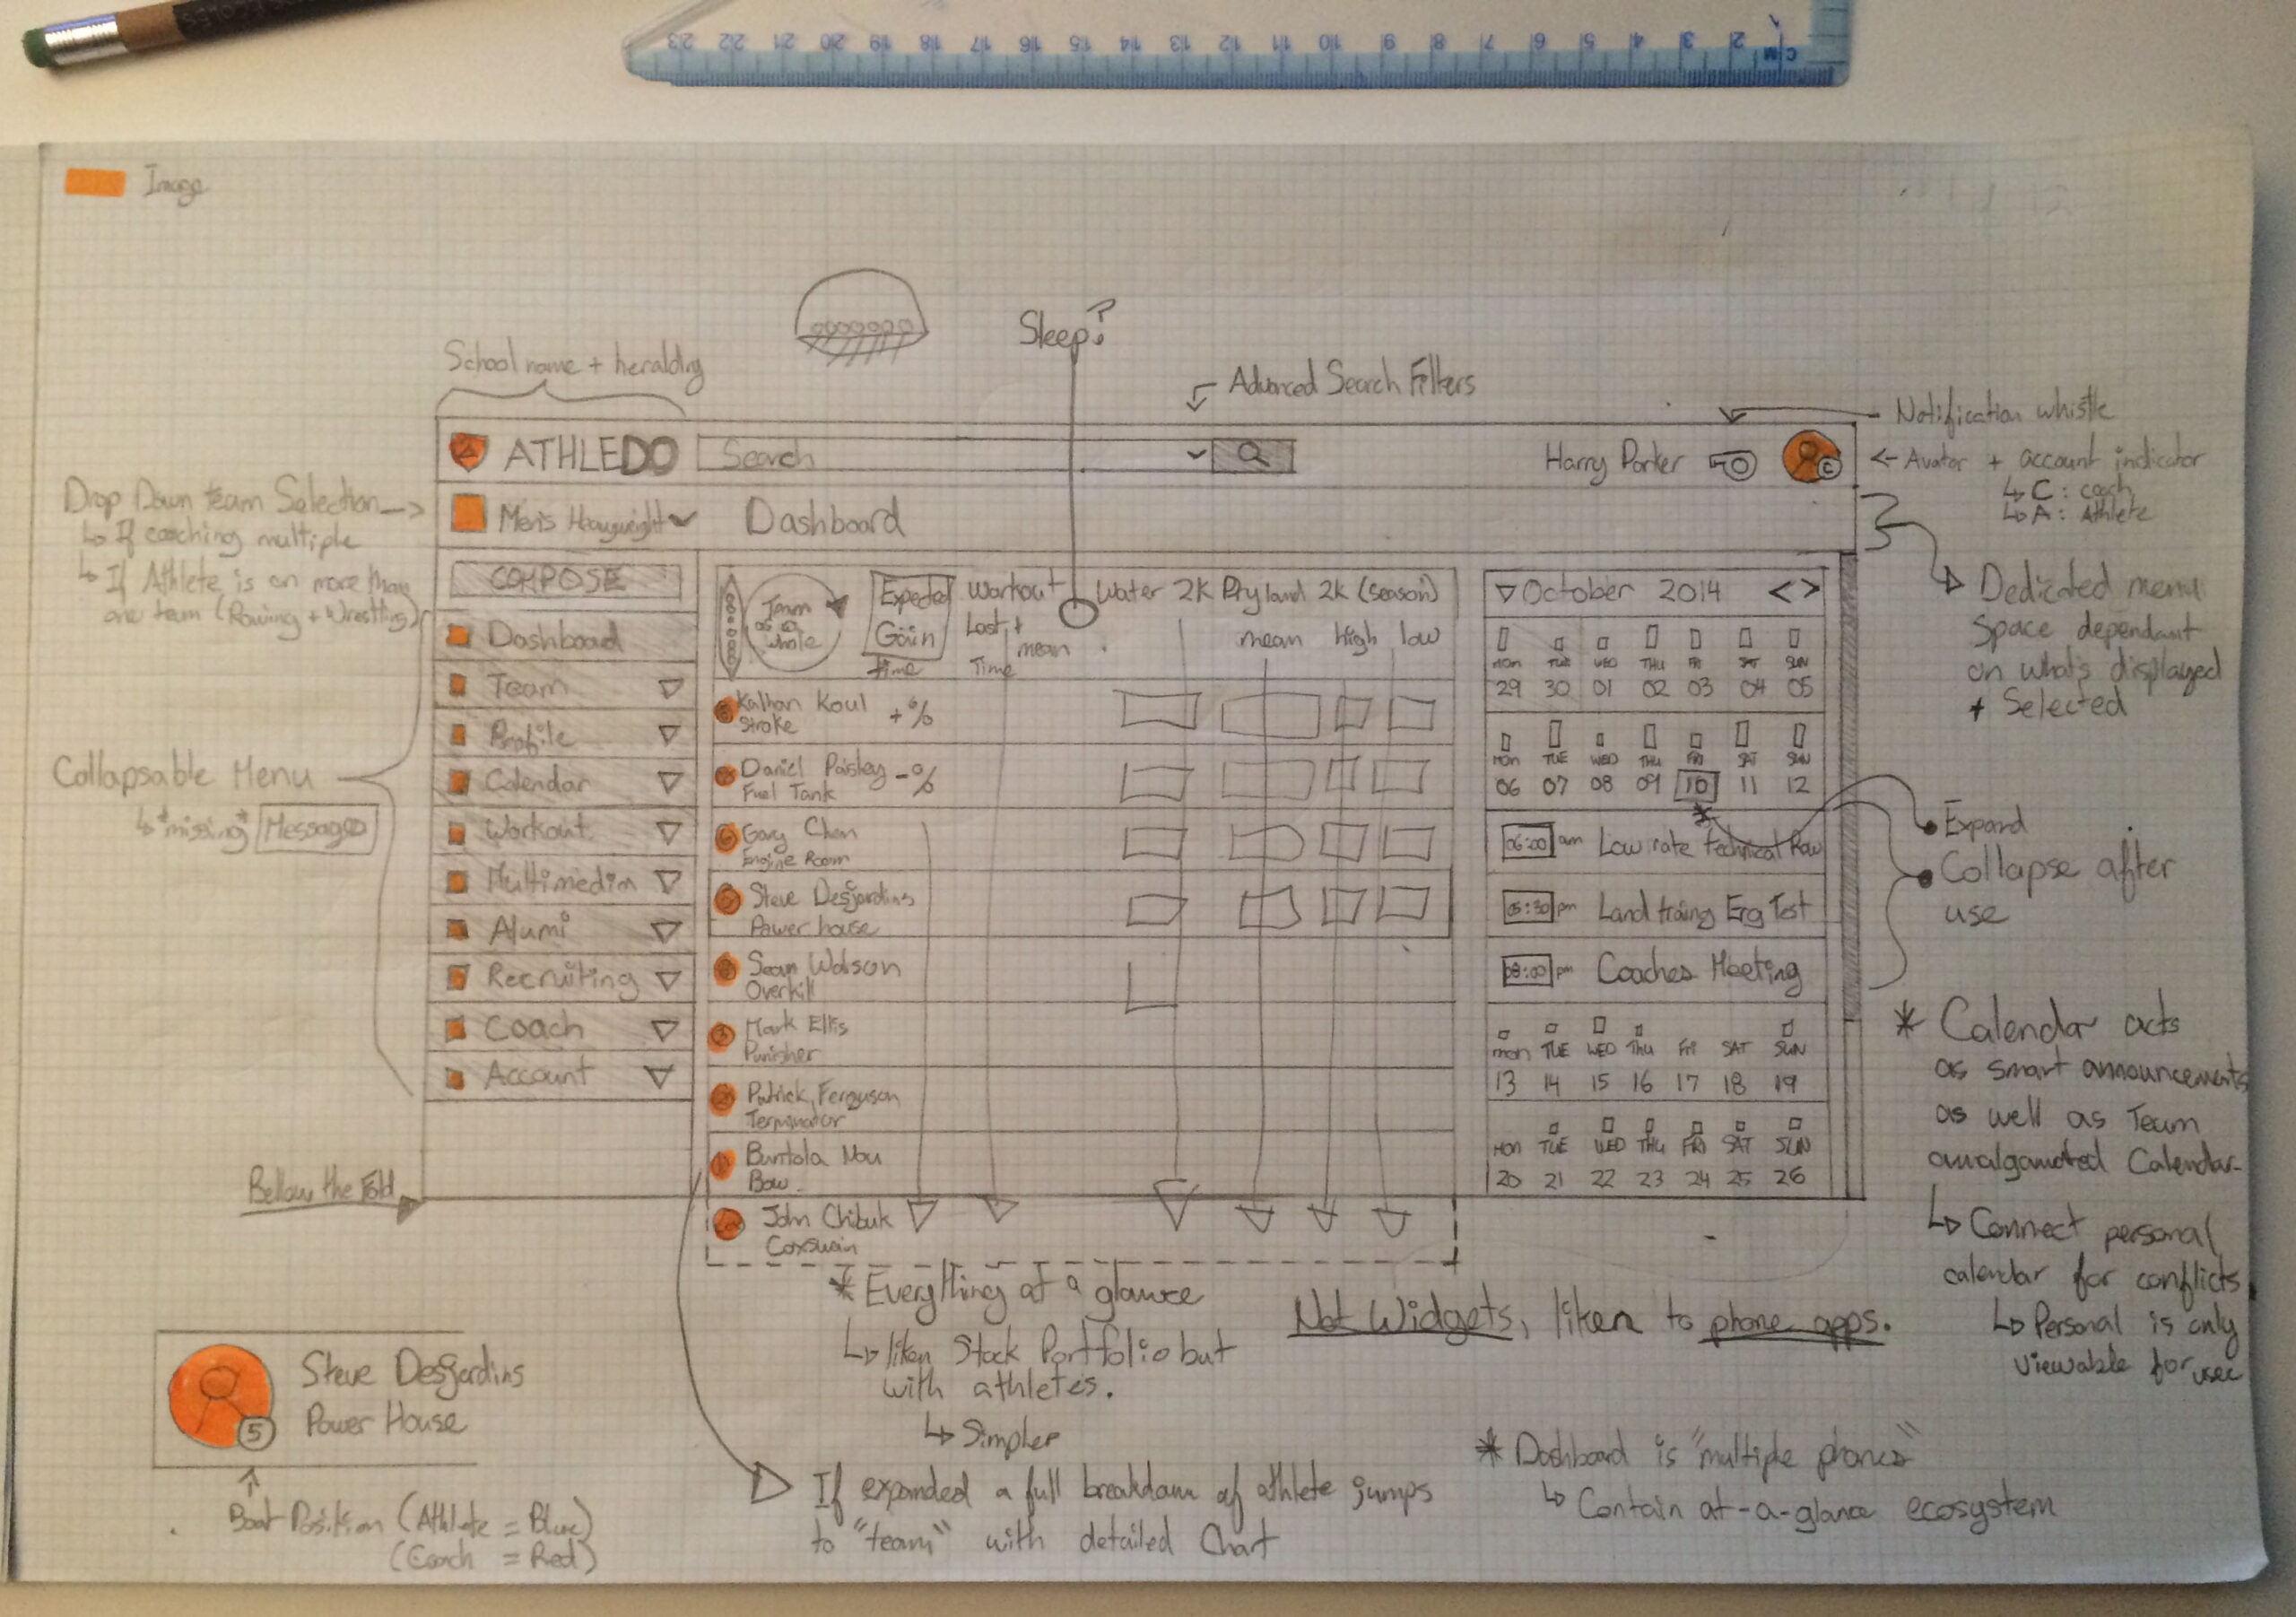 23 22 21 20 19 18 17 16 15 14 13 12 11 10 9 8 7 6 5 4 3 2 1
CM
Image
Sleep?
School name + heraldry
Advanced Search Filters
Notification whistle
ATHLEDO
Search
Harry Parker
C
<- Avatar + account indicator
↳ C : coach
↳ A : Athlete
Drop Down team Selection ->
↳ If coaching multiple
↳ If Athlete is on more than
one team (Rowing + Wrestling)
Men's Heavyweight
Dashboard
Dedicated menu
Space dependant
on what's displayed
+ Selected
COMPOSE
Dashboard
Team
Profile
Calendar
Workout
Multimedia
Alumi
Recruiting
Coach
Account
Collapsable Menu
↳ *missing* Messages
Bellow the Fold
Team
as a
whole
Expected
Gain
time
Workout
Last +
mean
Time
Water 2K
Dryland 2K (season)
mean high low
Kalhan Koul
Stroke
+%
Daniel Paisley
Fuel Tank
-%
Gary Chen
Engine Room
Steve Desjardins
Power house
Sean Watson
Overkill
Mark Ellis
Punisher
Patrick Ferguson
Terminator
Bow
John Chibuk
Coxswain
October 2014 < >
MON TUE WED THU FRI SAT SUN
29 30 01 02 03 04 05
MON TUE WED THU FRI SAT SUN
06 07 08 09 10 11 12
*
06:00 am Low rate technical Row
05:30 pm Land traing Erg Test
08:00 pm Coaches Meeting
mon TUE WED Thu Fri SAT SUN
13 14 15 16 17 18 19
MON TUE WED THU FRI SAT SUN
20 21 22 23 24 25 26
Expand
Collapse after
use
* Calendar acts
as smart announcements
as well as Team
amalgamated Calendar
↳ Connect personal
calendar for conflicts
↳ Personal is only
viewable for user
* Everything at a glance
↳ liken Stock Portfolio but
with athletes.
↳ Simpler
Not Widgets, liken to phone apps.
If expanded a full breakdown of athlete jumps
to "team" with detailed Chart
* Dashboard is "multiple phones"
↳ Contain at-a-glance ecosystem
Steve Desjardins
Power House
5
Boat Position (Athlete = Blue)
(Coach = Red)